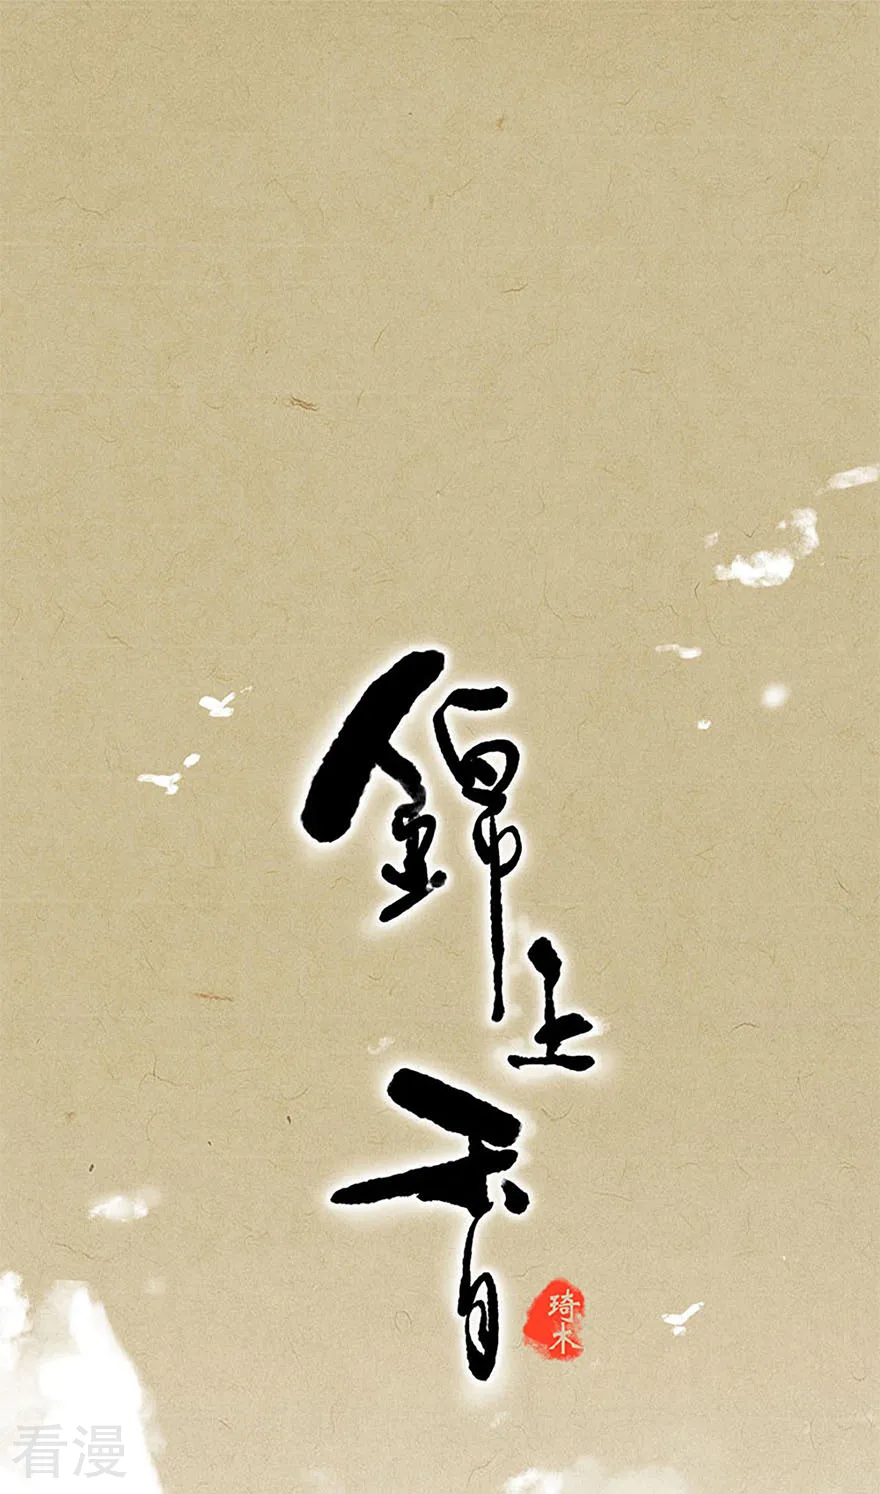 錦上香
琦木
看漫